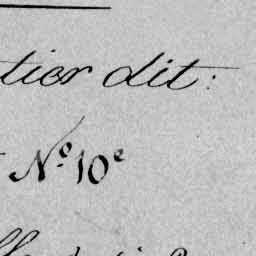 tier dit:
N.º 10e